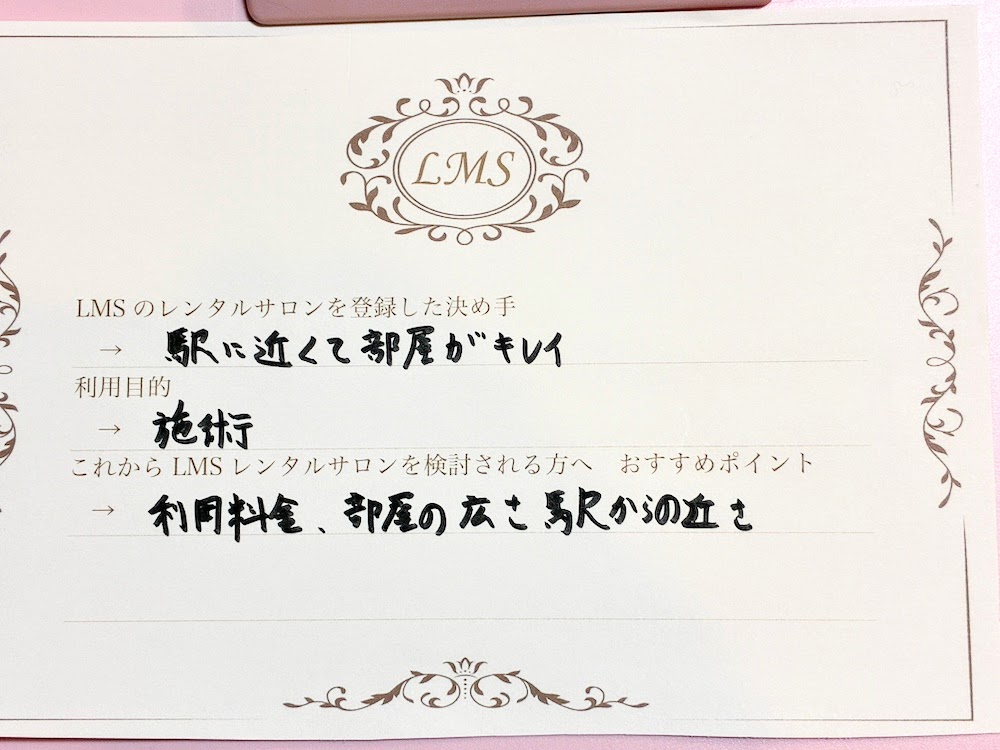 LMS
LMSのレンタルサロンを登録した決め手
→ 駅に近くて部屋がキレイ
利用目的
→ 施術
これからLMSレンタルサロンを検討される方へ おすすめポイント
→ 利用料金、部屋の広さ 駅からの近さ